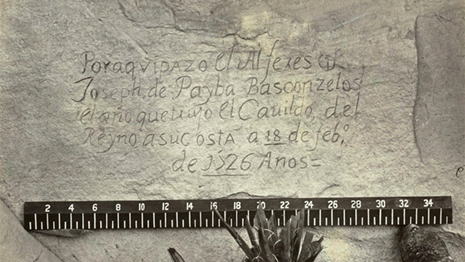 Por aqvi pazo el Alferes Dⁿ
Joseph de Payba Basconzelos
el año que trujo el Cauildo del
Reyno a su costa a 18 de febº
de 1726 Años =
2 4 6 8 10 12 14 16 18 20 22 24 26 28 30 32 34